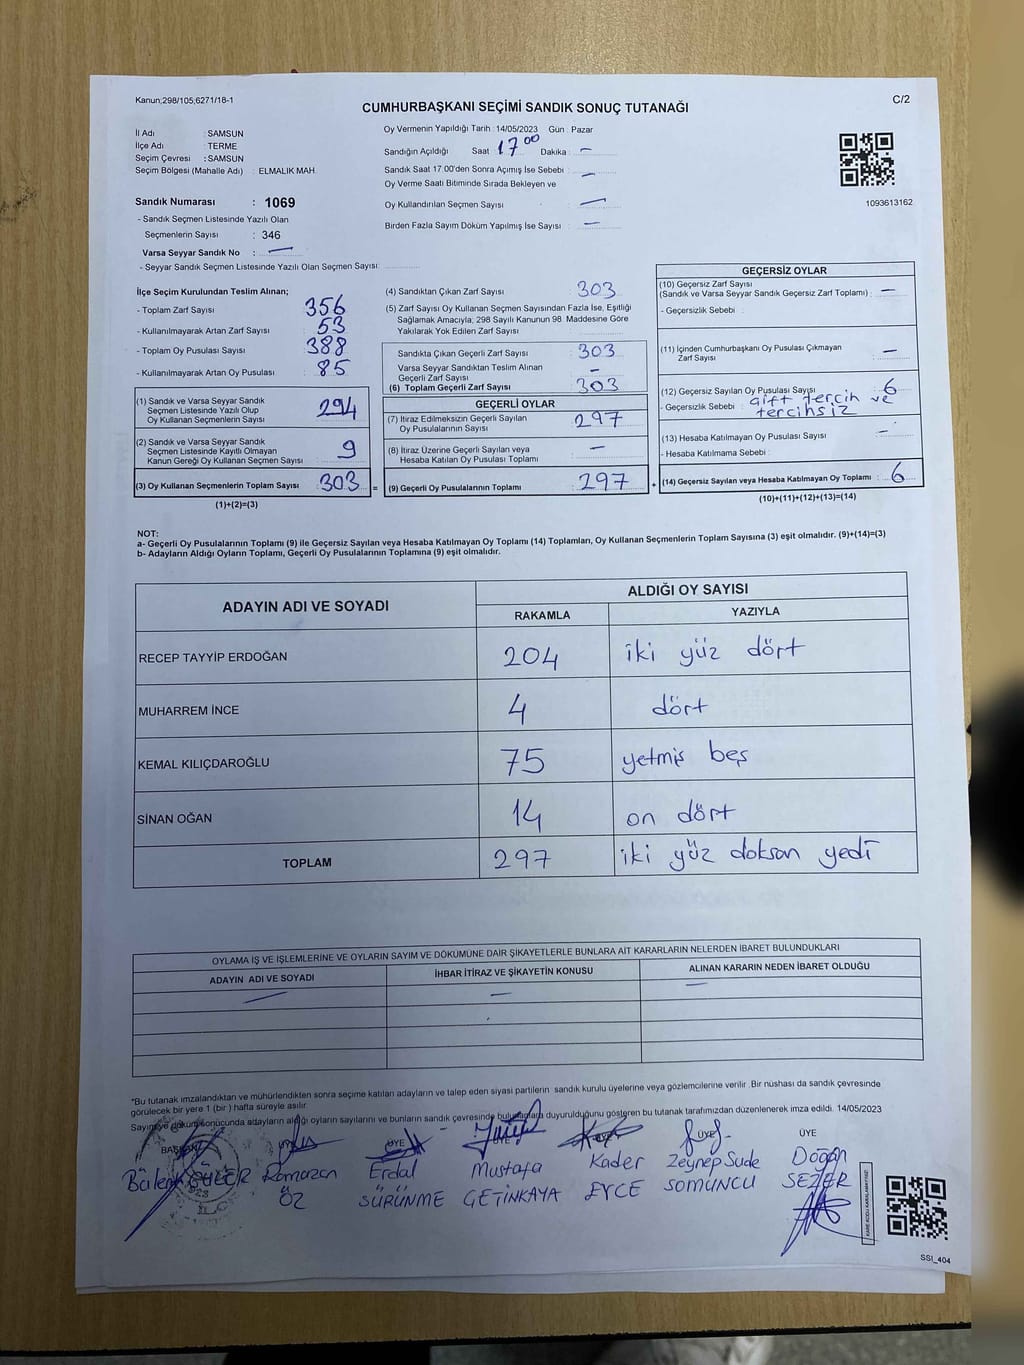 Kanun;298/105;6271/18-1
C/2
CUMHURBAŞKANI SEÇİMİ SANDIK SONUÇ TUTANAĞI
İl Adı : SAMSUN
İlçe Adı : TERME
Seçim Çevresi : SAMSUN
Seçim Bölgesi (Mahalle Adı) : ELMALIK MAH.
Sandık Numarası : 1069
- Sandık Seçmen Listesinde Yazılı Olan
Seçmenlerin Sayısı : 346
Varsa Seyyar Sandık No : —
- Seyyar Sandık Seçmen Listesinde Yazılı Olan Seçmen Sayısı:
Oy Vermenin Yapıldığı Tarih : 14/05/2023 Gün : Pazar
Sandığın Açıldığı Saat 17 00 Dakika : —
Sandık Saat 17.00'den Sonra Açımış İse Sebebi : —
Oy Verme Saati Bitiminde Sırada Bekleyen ve
Oy Kullandırılan Seçmen Sayısı : —
Birden Fazla Sayım Döküm Yapılmış İse Sayısı : —
1093613162
İlçe Seçim Kurulundan Teslim Alınan;
- Toplam Zarf Sayısı : 356
- Kullanılmayarak Artan Zarf Sayısı : 53
- Toplam Oy Pusulası Sayısı : 388
- Kullanılmayarak Artan Oy Pusulası : 85
(1) Sandık ve Varsa Seyyar Sandık
Seçmen Listesinde Yazılı Olup
Oy Kullanan Seçmenlerin Sayısı : 294
(2) Sandık ve Varsa Seyyar Sandık
Seçmen Listesinde Kayıtlı Olmayan
Kanun Gereği Oy Kullanan Seçmen Sayısı : 9
(3) Oy Kullanan Seçmenlerin Toplam Sayısı : 303 =
(1)+(2)=(3)
(4) Sandıktan Çıkan Zarf Sayısı : 303
(5) Zarf Sayısı Oy Kullanan Seçmen Sayısından Fazla İse, Eşitliği
Sağlamak Amacıyla; 298 Sayılı Kanunun 98. Maddesine Göre
Yakılarak Yok Edilen Zarf Sayısı :
Sandıkta Çıkan Geçerli Zarf Sayısı : 303
Varsa Seyyar Sandıktan Teslim Alınan
Geçerli Zarf Sayısı : —
(6) Toplam Geçerli Zarf Sayısı : 303
GEÇERLİ OYLAR
(7) İtiraz Edilmeksizin Geçerli Sayılan
Oy Pusulalarının Sayısı : 297
(8) İtiraz Üzerine Geçerli Sayılan veya
Hesaba Katılan Oy Pusulası Toplamı : —
(9) Geçerli Oy Pusulalarının Toplamı : 297 +
GEÇERSİZ OYLAR
(10) Geçersiz Zarf Sayısı
(Sandık ve Varsa Seyyar Sandık Geçersiz Zarf Toplamı) : —
- Geçersizlik Sebebi :
(11) İçinden Cumhurbaşkanı Oy Pusulası Çıkmayan
Zarf Sayısı : —
(12) Geçersiz Sayılan Oy Pusulası Sayısı : 6
- Geçersizlik Sebebi : çift tercih ve
tercihsiz
(13) Hesaba Katılmayan Oy Pusulası Sayısı : —
- Hesaba Katılmama Sebebi :
(14) Geçersiz Sayılan veya Hesaba Katılmayan Oy Toplamı : 6
(10)+(11)+(12)+(13)=(14)
NOT:
a- Geçerli Oy Pusulalarının Toplamı (9) ile Geçersiz Sayılan veya Hesaba Katılmayan Oy Toplamı (14) Toplamları, Oy Kullanan Seçmenlerin Toplam Sayısına (3) eşit olmalıdır. (9)+(14)=(3)
b- Adayların Aldığı Oyların Toplamı, Geçerli Oy Pusulalarının Toplamına (9) eşit olmalıdır.
ADAYIN ADI VE SOYADI
ALDIĞI OY SAYISI
RAKAMLA YAZIYLA
RECEP TAYYİP ERDOĞAN 204 iki yüz dört
MUHARREM İNCE 4 dört
KEMAL KILIÇDAROĞLU 75 yetmiş beş
SİNAN OĞAN 14 on dört
TOPLAM 297 iki yüz doksan yedi
OYLAMA İŞ VE İŞLEMLERİNE VE OYLARIN SAYIM VE DÖKÜMÜNE DAİR ŞİKAYETLERLE BUNLARA AİT KARARLARIN NELERDEN İBARET BULUNDUKLARI
ADAYIN ADI VE SOYADI İHBAR İTİRAZ VE ŞİKAYETİN KONUSU ALINAN KARARIN NEDEN İBARET OLDUĞU
— — —
*Bu tutanak imzalandıktan ve mühürlendikten sonra seçime katılan adayların ve talep eden siyasi partilerin sandık kurulu üyelerine veya gözlemcilerine verilir. Bir nüshası da sandık çevresinde
görülecek bir yere 1 (bir) hafta süreyle asılır.
Sayım ve döküm sonucunda adayların aldığı oyların sayılarını ve bunların sandık çevresinde duyurulduğunu gösteren bu tutanak tarafımızdan düzenlenerek imza edildi. 14/05/2023
BAŞKAN ÜYE ÜYE ÜYE ÜYE ÜYE ÜYE
Bülent GÜLER Ramazan Erdal Mustafa Kader Zeynep Sude Doğan
ÖZ SÜRÜNME ÇETİNKAYA EYCE SOMUNCU SEZER
SSI_404